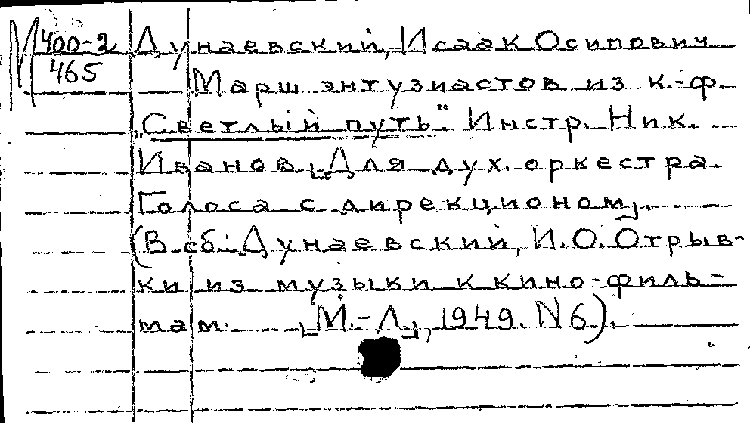 М 400-2 Дунаевский, Исаак Осипович
465 Марш энтузиастов из к.-ф.
„Светлый путь". Инстр. Ник.
Иванов. [Для дух. оркестра.
Голоса с дирекционом].
(В сб: Дунаевский, И.О. Отрыв-
ки из музыки к кино-филь-
мам. [М.-Л.], 1949. N 6).